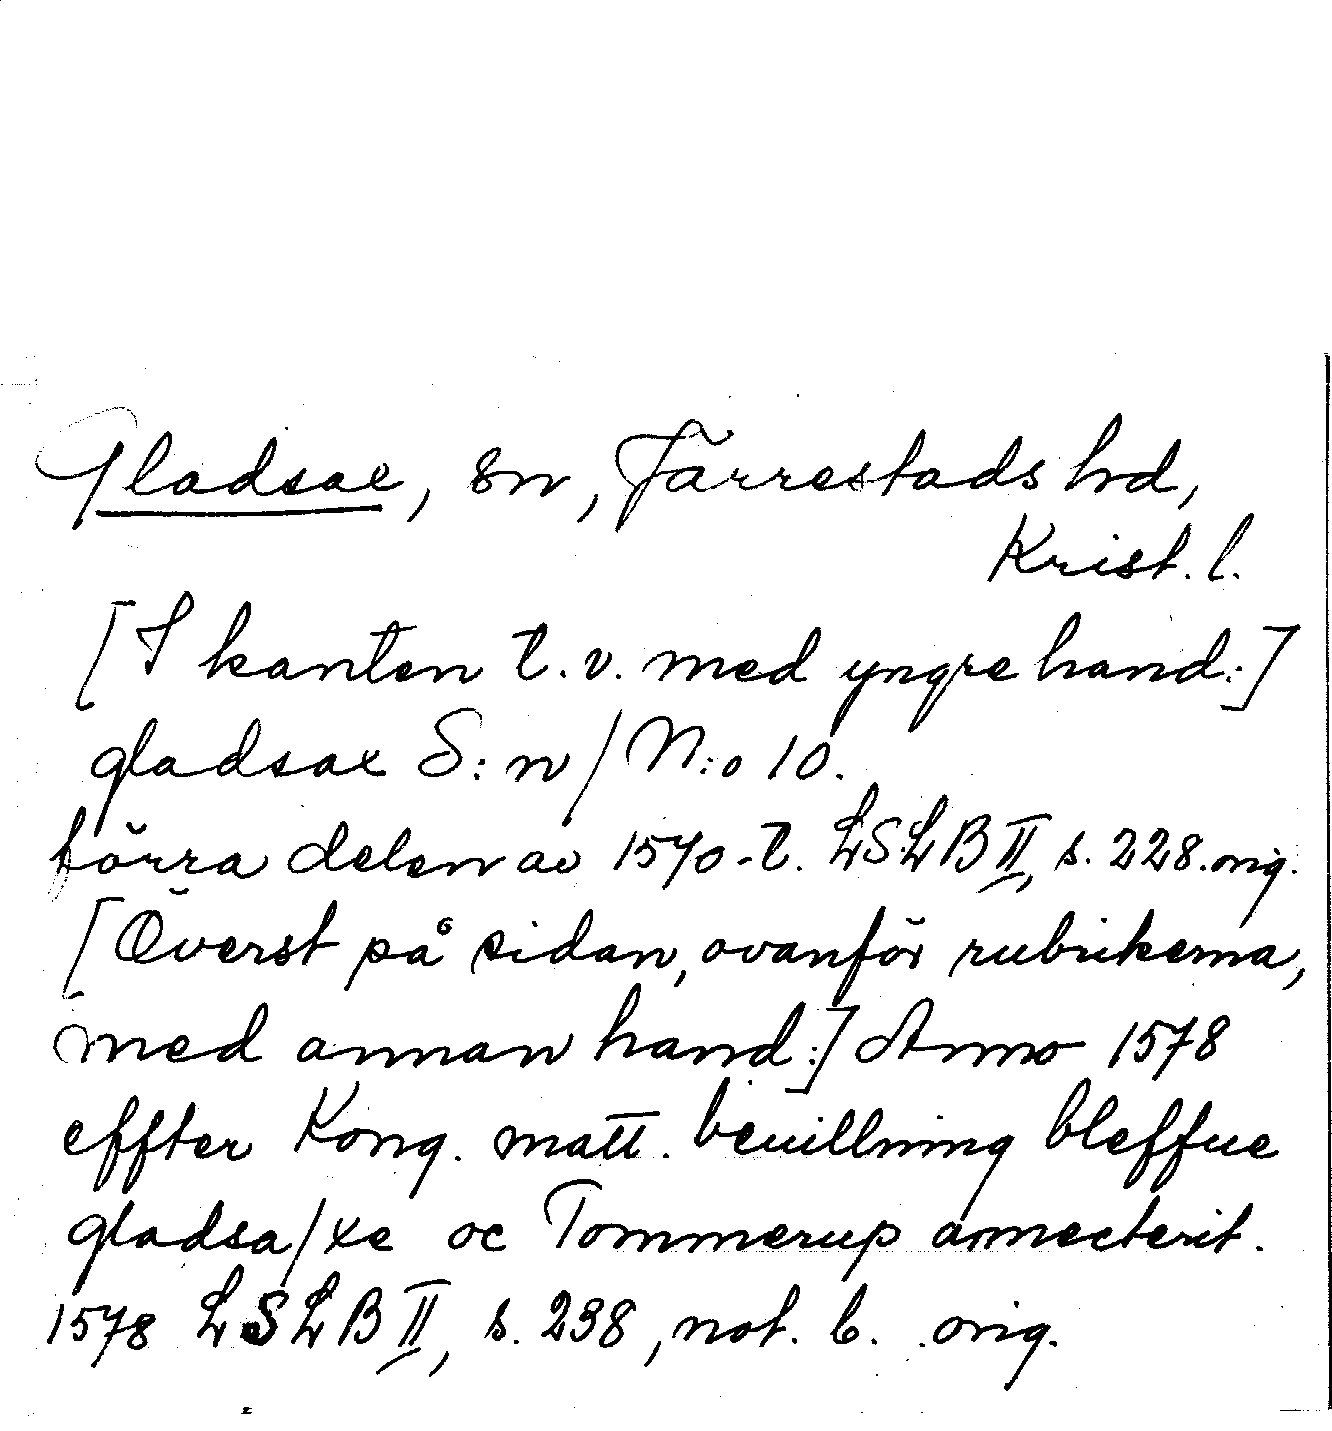 Gladsax, sn, Järrestads hd,
Krist. l.
[I kanten t. v. med yngre hand:]
gladsax S:n / N:o 10.
förra delen av 1570-t. LSLB II, s. 228. orig.
[Överst på sidan, ovanför rubrikerna,
med annan hand:] Anno 1578
effter Kong. matt. beuillning bleffue
gladsa/xe oc Tommerup annecterit.
1578 LSLB II, s. 238, not. b. orig.